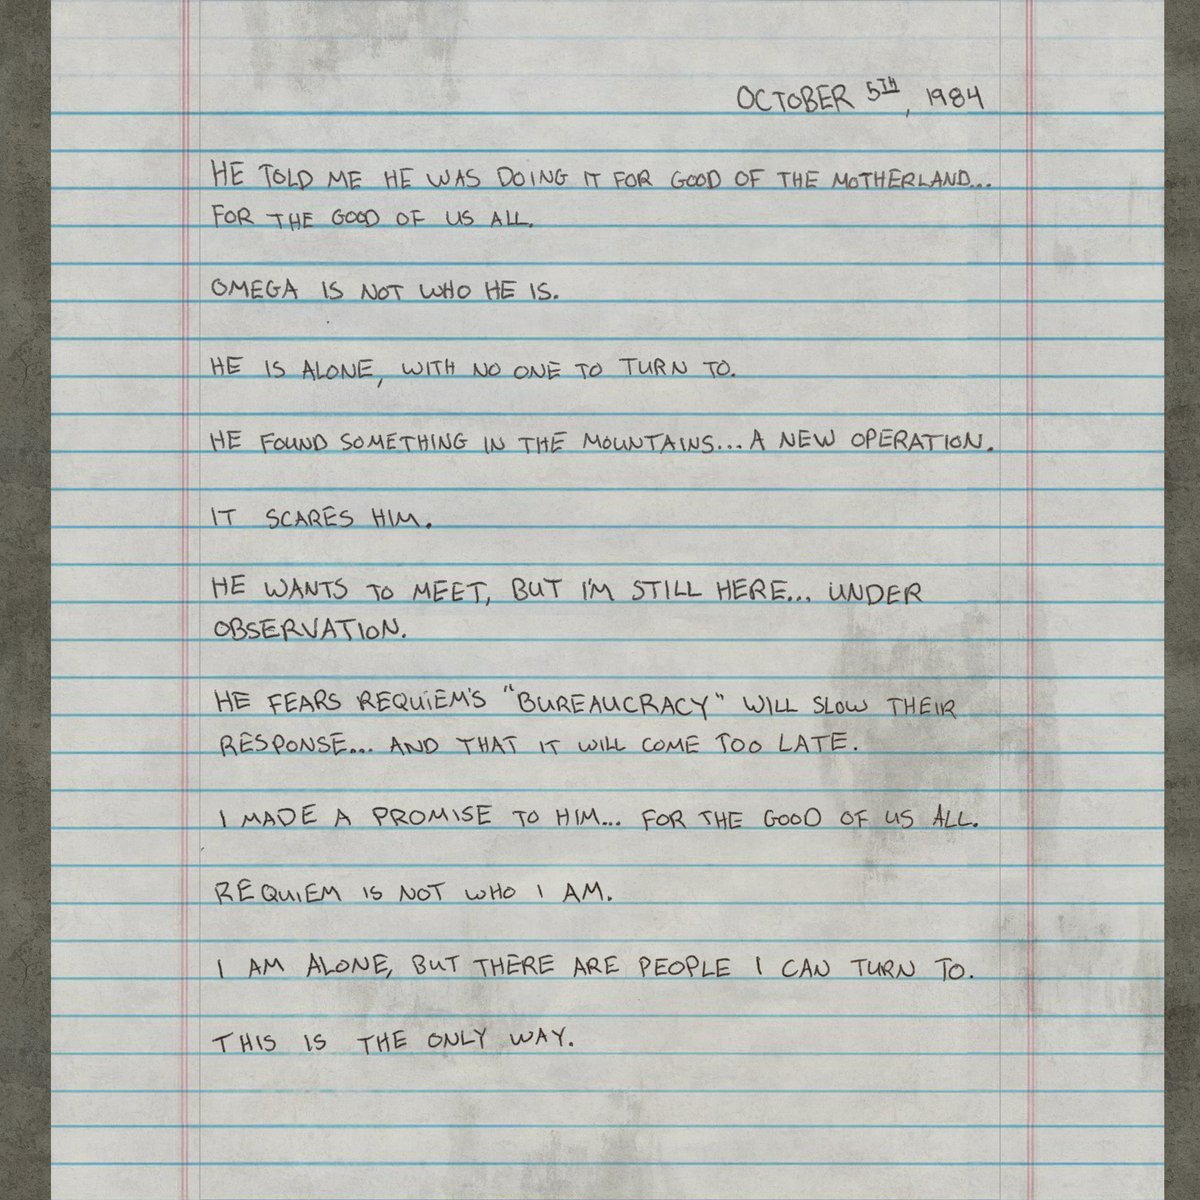 OCTOBER 5TH, 1984
HE TOLD ME HE WAS DOING IT FOR GOOD OF THE MOTHERLAND...
FOR THE GOOD OF US ALL.
OMEGA IS NOT WHO HE IS.
HE IS ALONE, WITH NO ONE TO TURN TO.
HE FOUND SOMETHING IN THE MOUNTAINS... A NEW OPERATION.
IT SCARES HIM.
HE WANTS TO MEET, BUT I'M STILL HERE... UNDER
OBSERVATION.
HE FEARS REQUIEM'S "BUREAUCRACY" WILL SLOW THEIR
RESPONSE... AND THAT IT WILL COME TOO LATE.
I MADE A PROMISE TO HIM... FOR THE GOOD OF US ALL.
REQUIEM IS NOT WHO I AM.
I AM ALONE, BUT THERE ARE PEOPLE I CAN TURN TO.
THIS IS THE ONLY WAY.